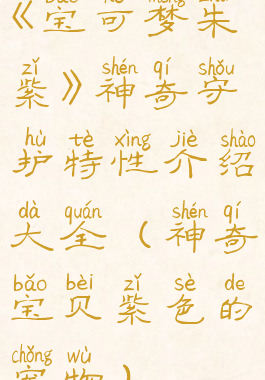 《宝可梦朱
zǐ shén qí shǒu
紫》神奇守
hù tè xìng jiè shào
护特性介绍
dà quán shén qí
大全（神奇
bǎo bèi zǐ sè de
宝贝紫色的
chǒng wù
宠物）